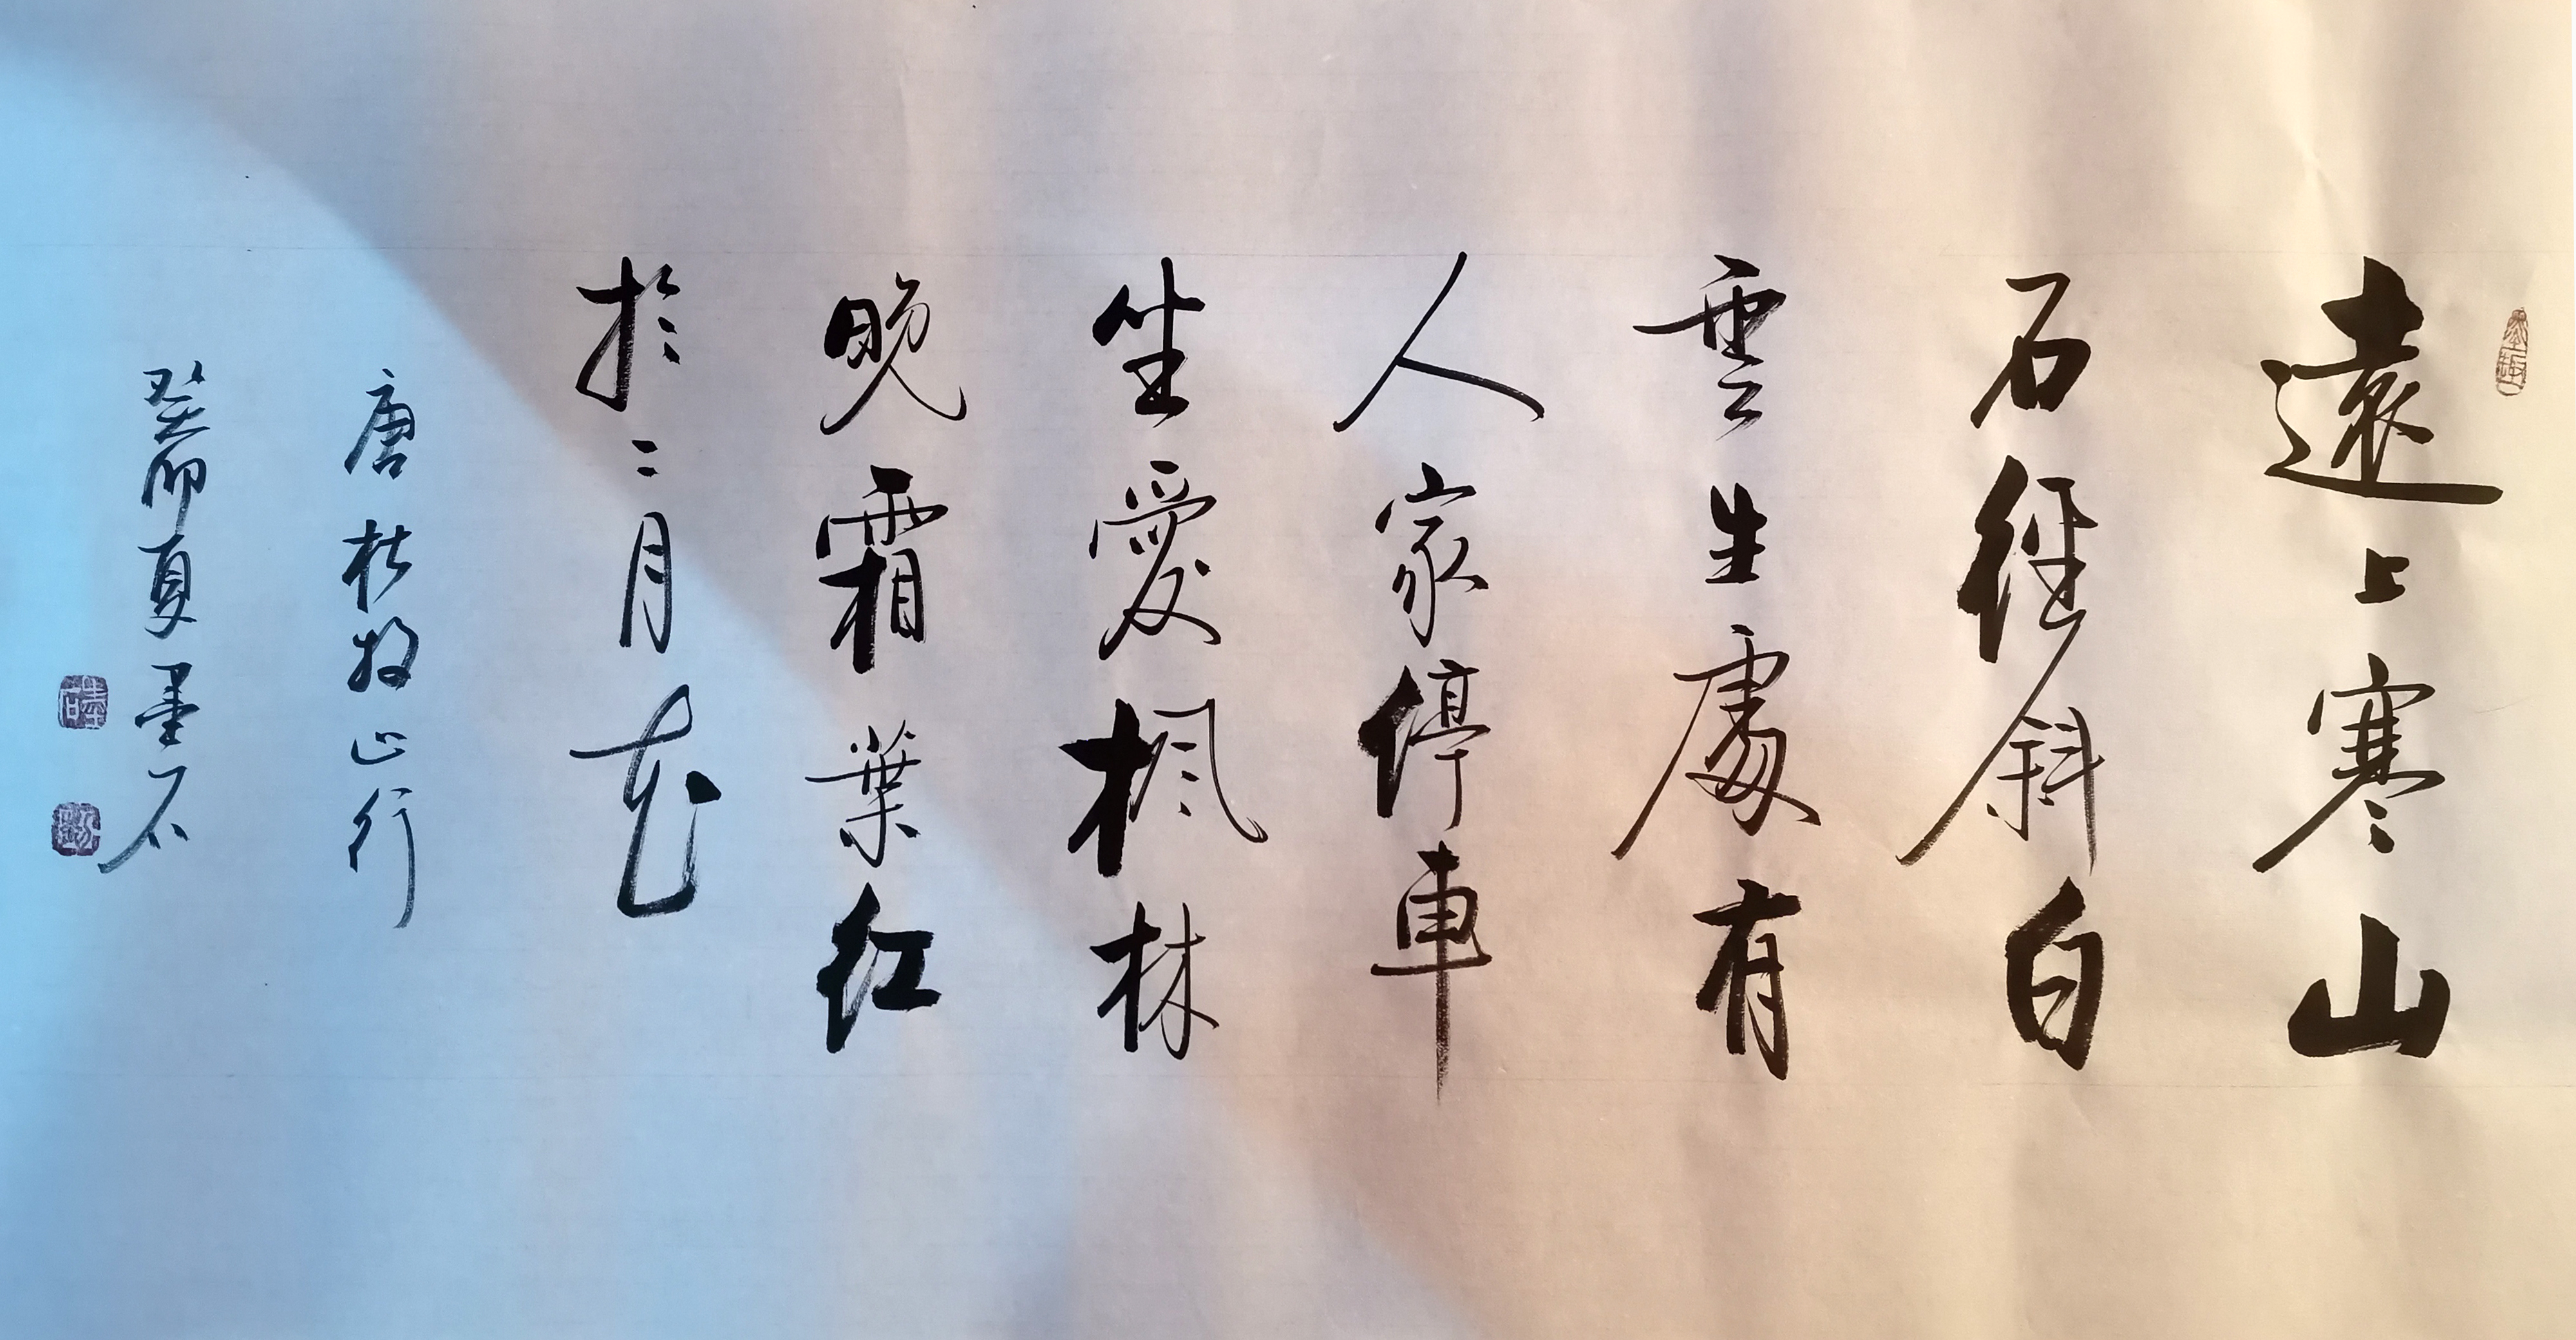 遠上寒山
石径斜白
雲生處有
人家停車
坐愛楓林
晚霜葉红
於二月花
唐杜牧山行
癸卯夏墨石